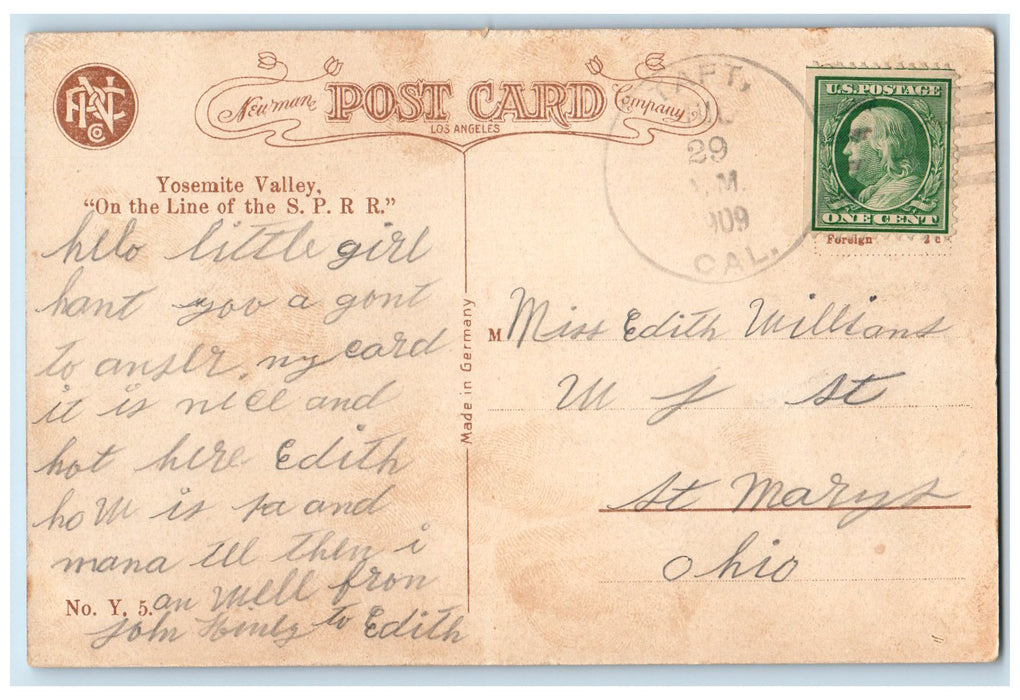 Newman POST CARD Company
LOS ANGELES
Yosemite Valley,
"On the Line of the S. P. R R."
TAFT,
29
M
909
CAL.
U.S. POSTAGE
ONE CENT
Foreign 2 c
helo little girl
hant you a gont
to anser. ny card
it is nice and
hot here Edith
how is pa and
mana tell then i
an well fron
John to Edith
No. Y. 5.
Made in Germany
M Miss Edith Willians
W J St
St Marys
Ohio